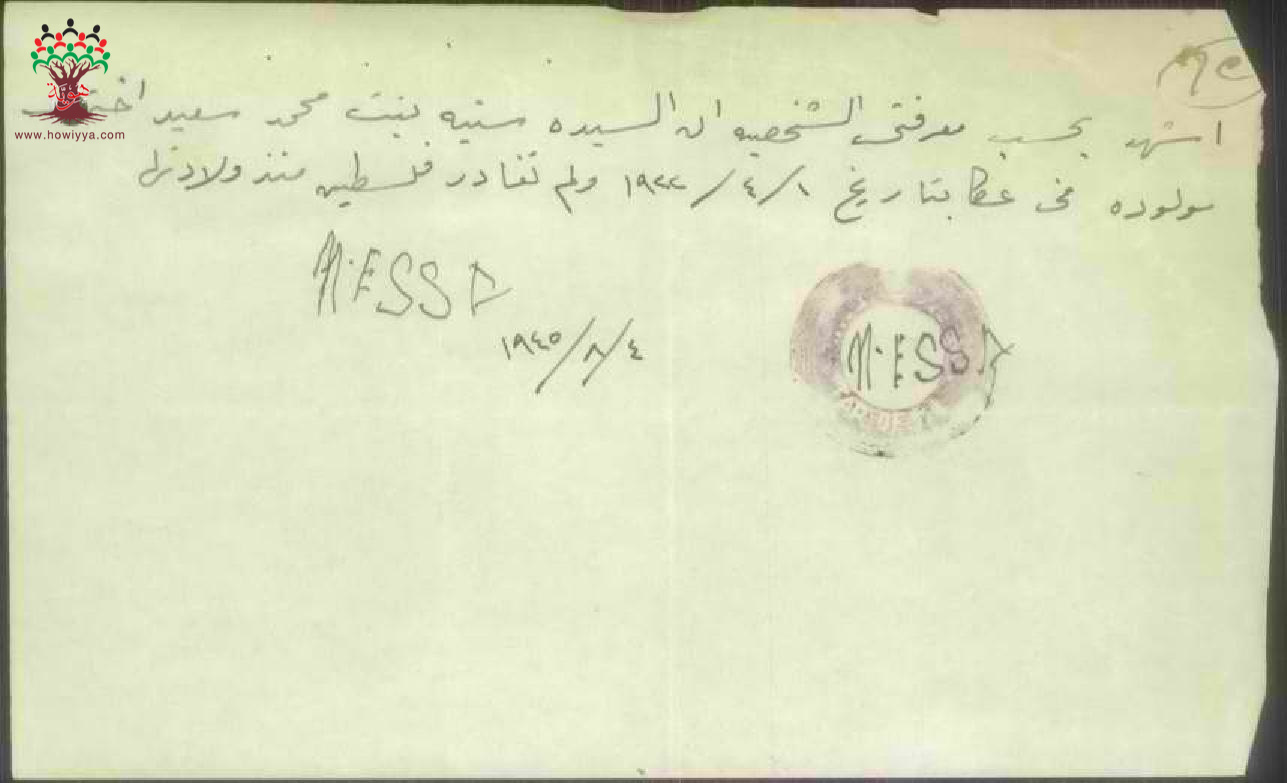 هوية
www.howiyya.com
اشهد بحسب معرفتي الشخصيه ان السيده سنيه بنت محمد سعيد
مولوده في عكا بتاريخ ١/٤/١٩٢٢ ولم تغادر فلسطين منذ ولادتها
M.ESSA
٤/٨/١٩٤٥
M.ESSA